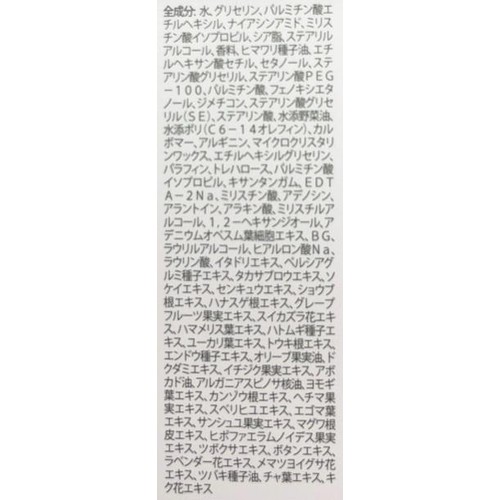 全成分：水、グリセリン、パルミチン酸エ
チルヘキシル、ナイアシンアミド、ミリス
チン酸イソプロピル、シア脂、ステアリル
アルコール、香料、ヒマワリ種子油、エチ
ルヘキサン酸セチル、セタノール、ステ
アリン酸グリセリル、ステアリン酸PEG
-100、パルミチン酸、フェノキシエタ
ノール、ジメチコン、ステアリン酸グリセ
リル(SE)、ステアリン酸、水添野菜油、
水添ポリ(C6-14オレフィン)、カル
ボマー、アルギニン、マイクロクリスタリ
ンワックス、エチルヘキシルグリセリン、
パラフィン、トレハロース、パルミチン酸
イソプロピル、キサンタンガム、EDT
A-2Na、ミリスチン酸、アデノシン、
アラントイン、アラキン酸、ミリスチルア
ルコール、1,2-ヘキサンジオール、ア
デニウムオベスム葉細胞エキス、BG、
ラウリルアルコール、ヒアルロン酸Na、
ラウリン酸、イタドリエキス、ペルシアグ
ルミ種子エキス、タカサブロウエキス、ソ
ケイエキス、センキュウエキス、ショウブ
根エキス、ハナスゲ根エキス、グレープ
フルーツ果実エキス、スイカズラ花エキ
ス、ハマメリス葉エキス、ハトムギ種子エ
キス、ユーカリ葉エキス、トウキ根エキス、
エンドウ種子エキス、オリーブ果実油、ド
クダミエキス、イチジク果実エキス、アボ
カド油、アルガニアスピノサ核油、ヨモギ
葉エキス、カンゾウ根エキス、ヘチマ果
実エキス、スベリヒユエキス、エゴマ葉
エキス、サンシュユ果実エキス、マグワ根
皮エキス、ヒポファエラムノイデス果実エ
キス、ツボクサエキス、ボタンエキス、
ラベンダー花エキス、メマツヨイグサ花
エキス、ツバキ種子油、チャ葉エキス、キ
ク花エキス